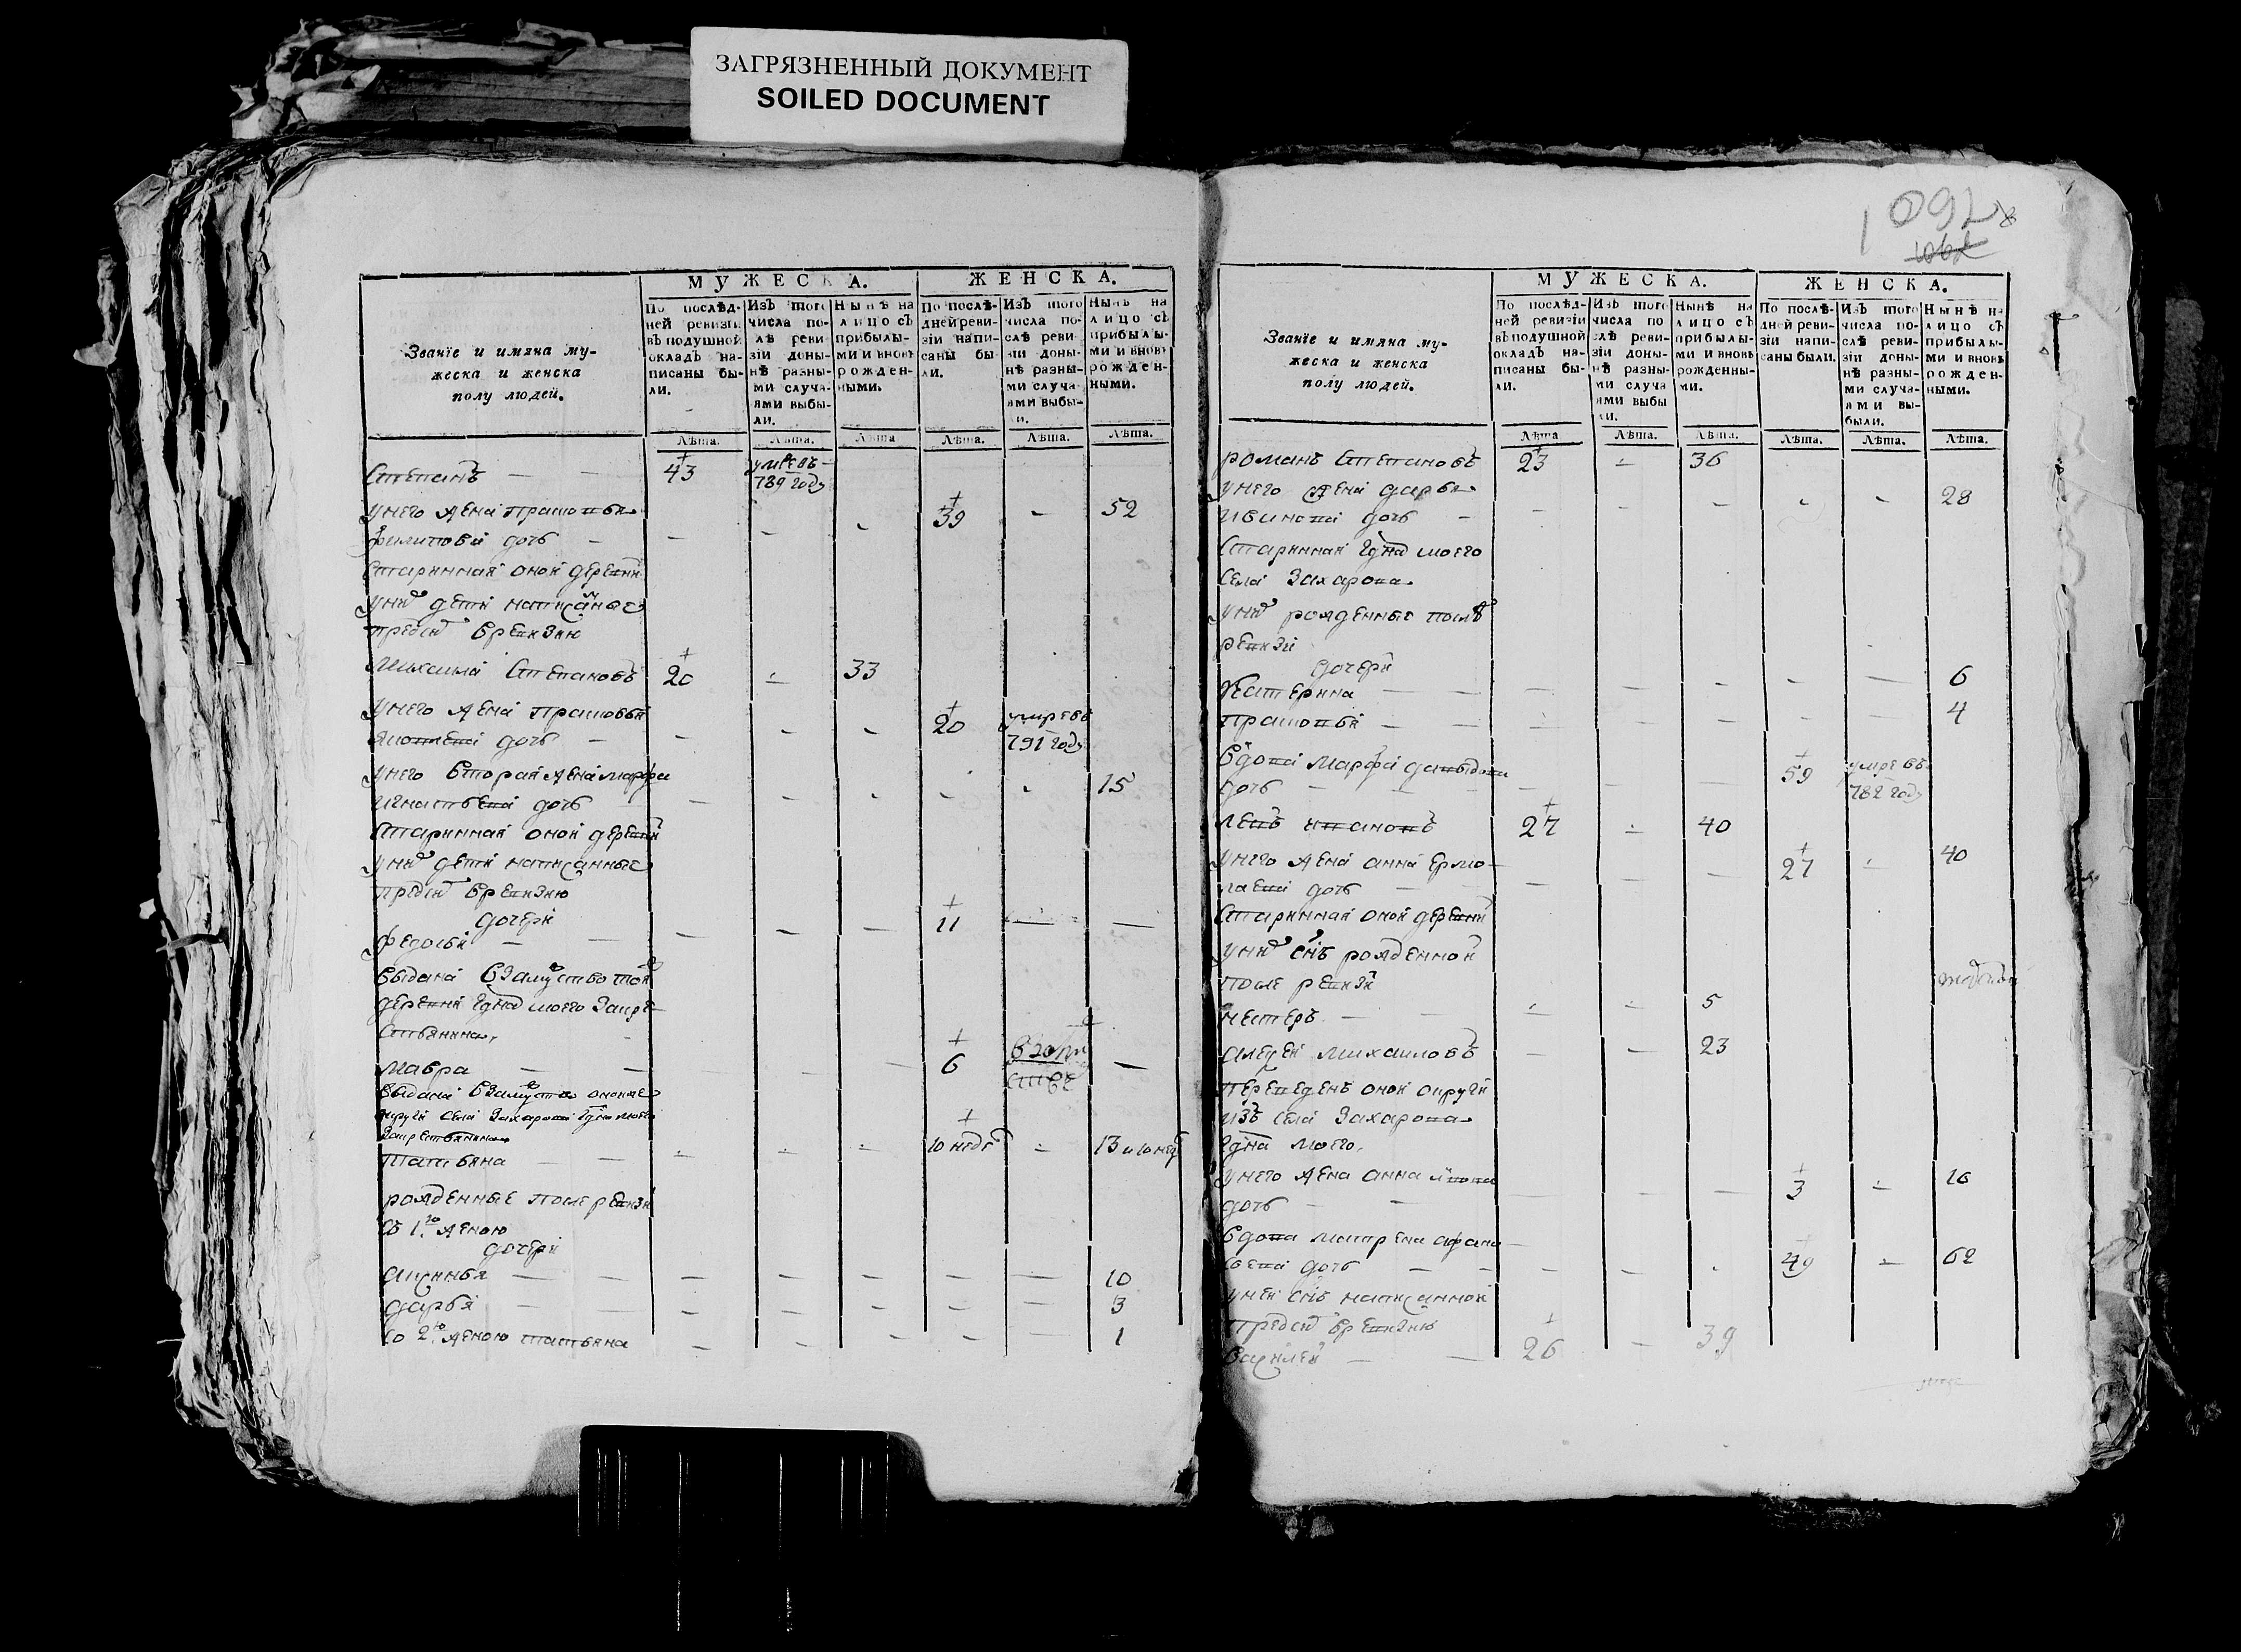 ЗАГРЯЗНЕННЫЙ ДОКУМЕНТ
SOILED DOCUMENT
1092
МУЖЕСКА. ЖЕНСКА.
Званїе и имяна му-
жеска и женска
полу людей.
По послѣд-
ней ревизіи
въ подушной
окладъ на-
писаны бы-
ли.
Изъ того
числа по-
слѣ реви-
зіи доны-
нѣ разны-
ми случа-
ями выбы-
ли.
Нынѣ на
лицо съ
прибылы-
ми и вновь
рожден-
ными.
По послѣ-
дней реви-
зіи напи-
саны бы-
ли.
Изъ того
числа по-
слѣ реви-
зіи доны-
нѣ разны-
ми случа-
ями выбы-
ли.
Нынѣ на
лицо съ
прибылы-
ми и вновь
рожден-
ными.
Лѣта. Лѣта. Лѣта Лѣта. Лѣта. Лѣта.
Степанъ — — 43 умревъ
789 году
у него жена прасковья 39 — 52
филипова дочь —
старинная оной деревни
у них дети написаныe
пред сим в ревизию
михаила степановъ 20 — 33
у него жена прасковья 20 умре въ
яковлева дочь — 791 году
у него вторая жена марфа 15
игнатьева дочь
старинная оной деревни
у них дети написанные
пред сим в ревизию
дочери
федосья — — 11 — —
выдана в замужство той
деревни гдна моего за кре
стьянина,
мавра — — 6 —
выдана в замужство оной же
округи села Захарова гдна моего
за крестьянина
татьяна — — 10 недел — 13 и 10 нед
рожденные после ревизи
съ 1.й женою
дочери
аксинья — — 10
дарья — — 3
со 2.ю женою татьяна 1
МУЖЕСКА. ЖЕНСКА.
Званїе и имяна му-
жеска и женска
полу людей.
По послѣд-
ней ревизіи
въ подушной
окладъ на-
писаны бы-
ли.
Изъ того
числа по
слѣ реви-
зіи доны-
нѣ разны-
ми случа
ями выбы
ли.
Нынѣ на
лицо съ
прибылы-
ми и вновь
рожденны-
ми.
По послѣ-
дней реви-
зіи напи-
саны были.
Изъ того
числа по-
слѣ реви-
зіи доны-
нѣ разны-
ми случа-
ями вы-
были.
Нынѣ на
лицо съ
прибылы-
ми и вновь
рожден-
ными.
Лѣта Лѣта. Лѣта. Лѣта. Лѣта. Лѣта.
романъ степановъ 23 — 36
у него жена дарья 28
иванова дочь —
старинная гдна моего
села Захарова
у них рожденные послѣ
ревизи
дочери
катерина — — 6
прасковья — — 4
вдова марфа давыдова 59 умре въ
дочь — 782 году
левъ ивановъ 27 — 40
у него жена анна ермо- 27 — 40
лаева дочь —
старинная оной деревни
у них снъ рожденной
после ревизи
нестеръ — 5
алексей михаиловъ — — 23
переведенъ оной округи
изъ села Захарова
гдна моего,
у него жена анна 3 — 16
дочь — —
вдова матрена афана
сьева дочь — 49 — 62
у неи снъ написанной
пред сим в ревизию
василеи — — 26 — 39